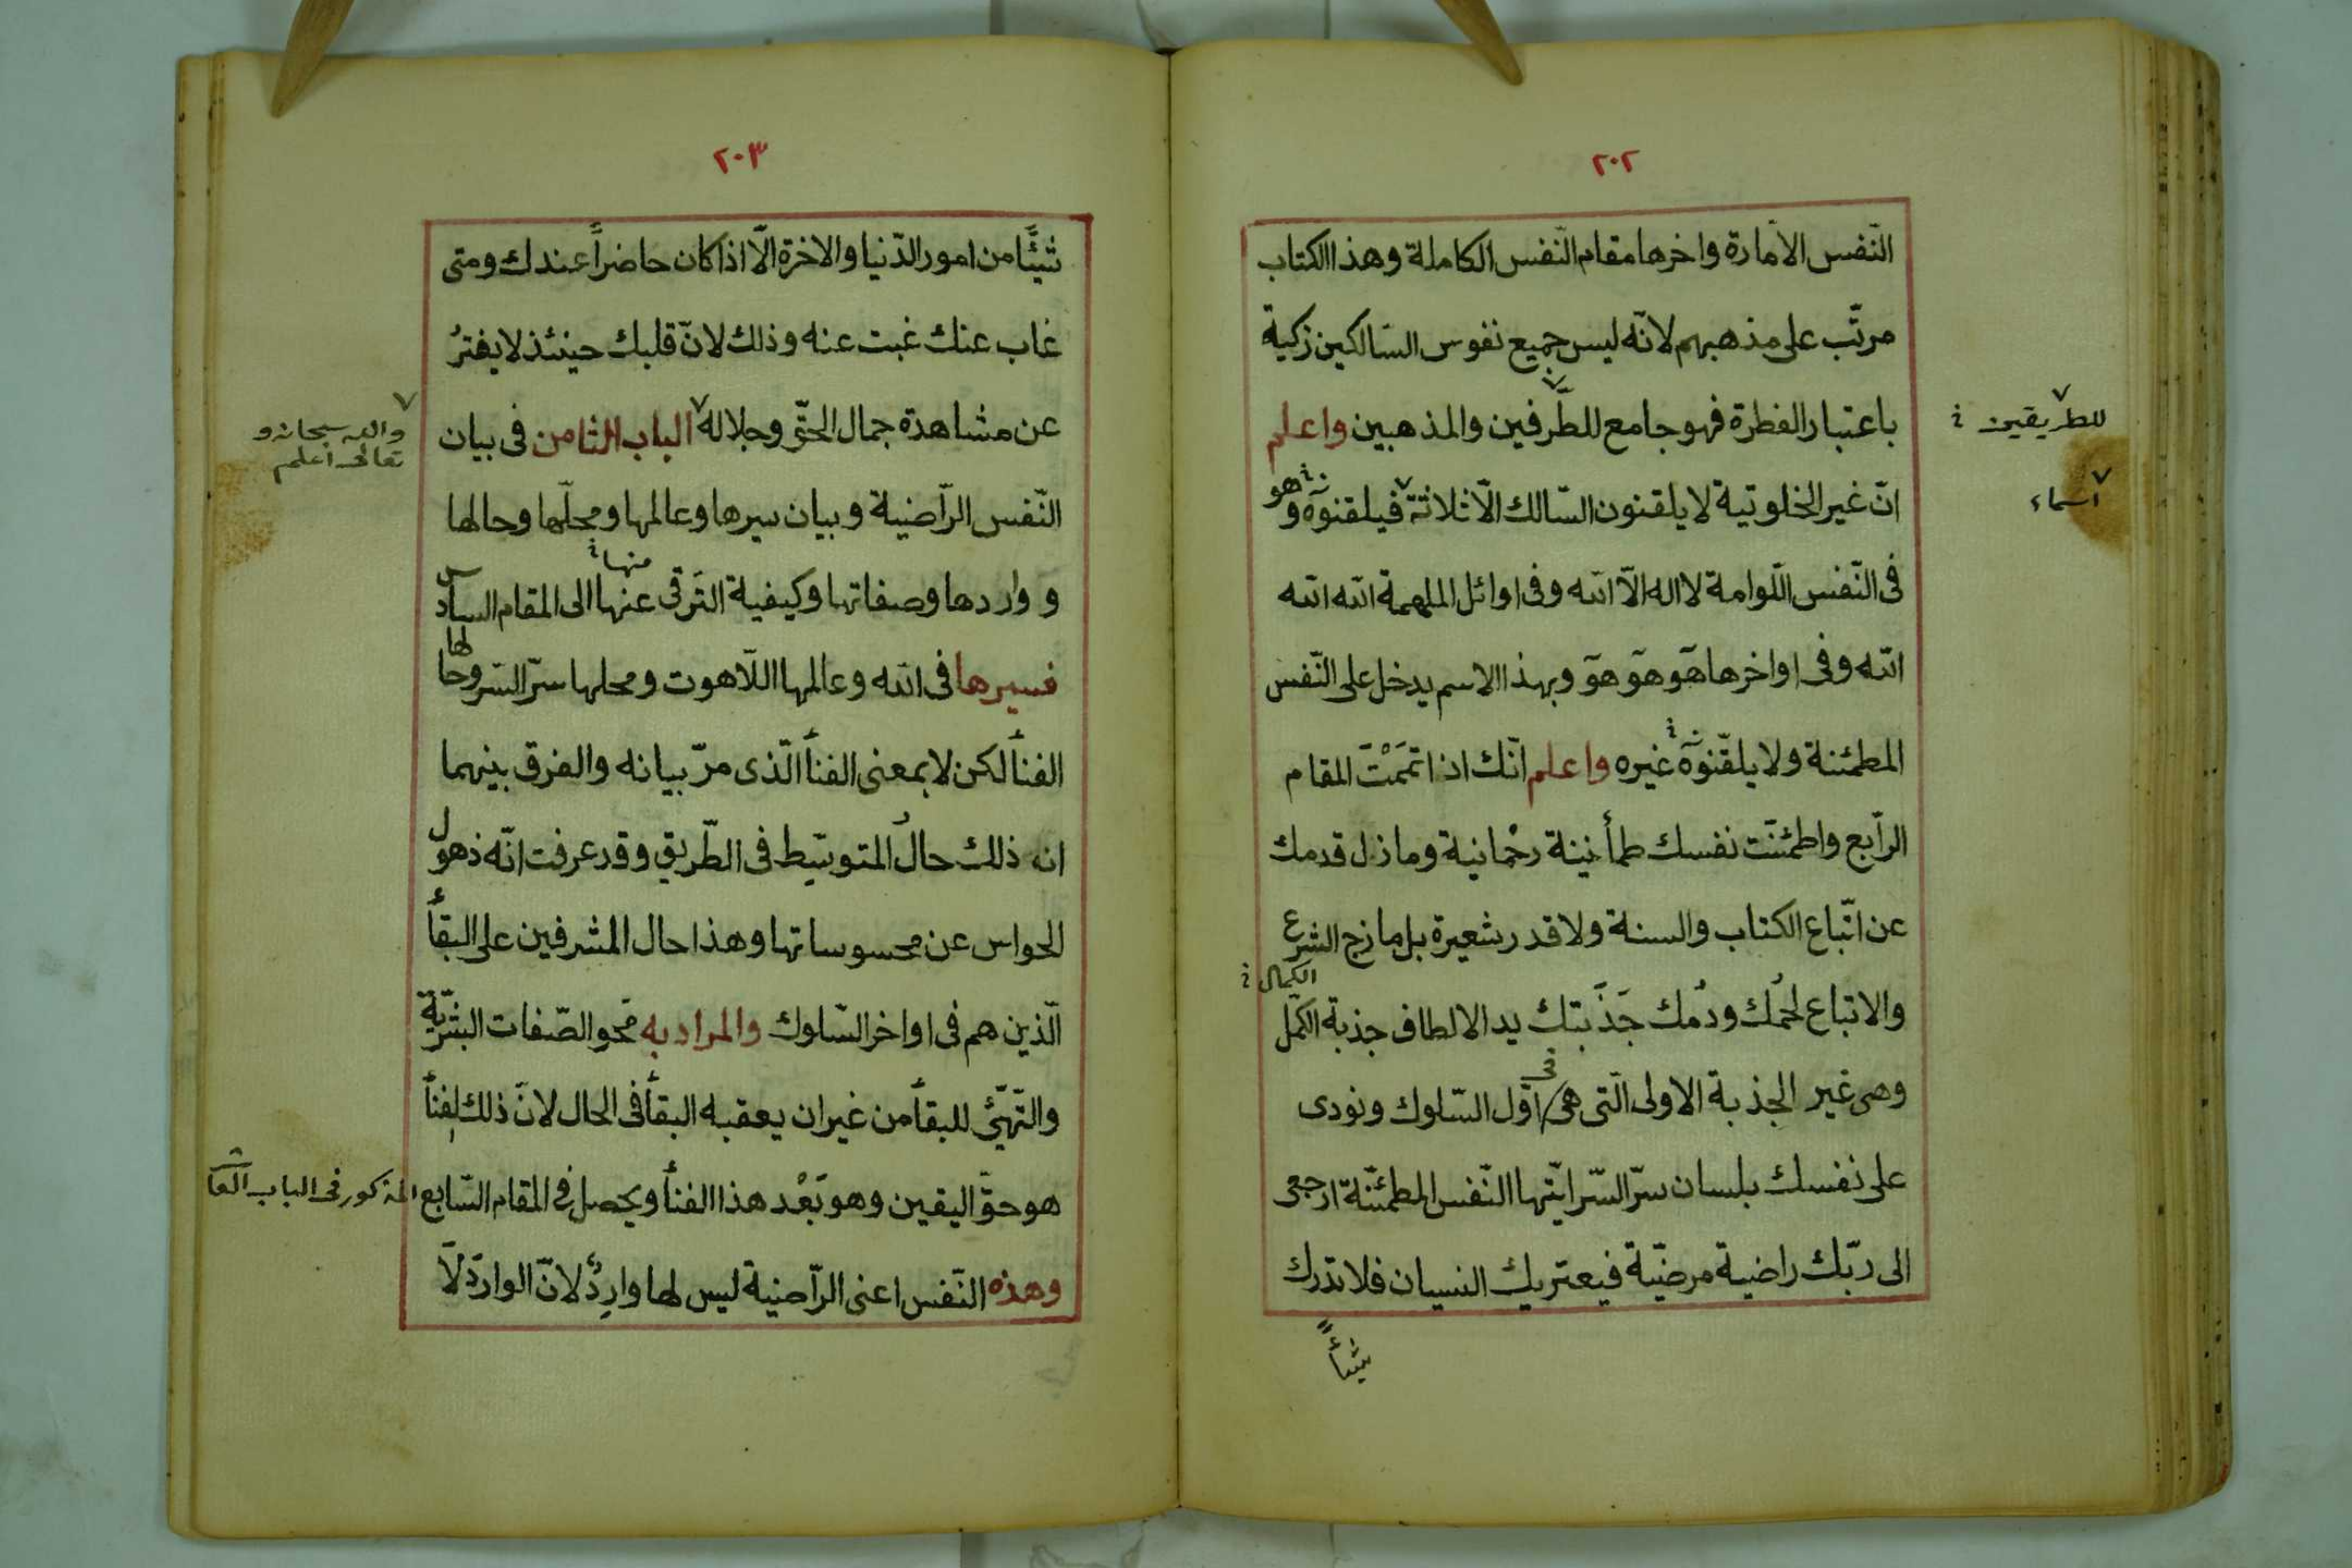 ٢٠٢
النّفس الامارة واخرها مقام النّفس الكاملة وهذا الكتاب
مرتّب على مذهبهم لانّه ليس جميع نفوس السّالكين زكية
باعتبار الفطرة فهو جامع للطّرفين والمذهبين واعلم
للطريقين
انّ غير الخلوتية لا يلقنون السّالك الّا ثلاثة فيلقنونه وهو
اسماء
فى النّفس اللّوامة لا اله الّا الله وفى اوائل الملهمة الله الله
الله وفى اواخرها هو هو هو وبهذا الاسم يدخل على النّفس
المطمئنة ولا يلقّنونه غيره واعلم انّك اذا تمَمْتَ المقام
الرّابع واطمئنّت نفسك طمأنينة رحْمانية وما زل قدمك
عن اتّباع الكتاب والسنة ولا قدر شعيرة بل مازج الشرع
الكمال
والاتباع لحمُك ودمُك جَذَبتك يد الالطاف جذبة الكمّل
وهى غير الجذبة الاولى الّتى هى فى اوّل السّلوك ونودى
على نفسك بلسان سرّ السّر ايّتها النّفس المطمئنّة ارجعى
الى ربّك راضية مرضيّة فيعتريك النسيان فلا تدرك
شيئاً
٢٠٣
شيئًا من امور الدّنيا والاخرة الّا اذا كان حاضراً عندك ومتى
غاب عنك غبت عنه وذلك لانّ قلبك حينئذ لا يفترُ
عن مشاهدة جمال الحقّ وجلاله الباب الثامن فى بيان
والله سبحانه و
تعالى اعلم
النّفس الرّاضية وبيان سيرها وعالمها ومحلّها وحالها
منها
وواردها وصفاتها وكيفية التَرقى عنها الى المقام السادس
فسيرها فى الله وعالمها اللّاهوت ومحلها سرّ السّر وحالها
الفنأ لكن لا بمعنى الفنأ الّذى مرّ بيانه والفرق بينهما
انه ذلك حالُ المتوسّط فى الطّريق وقد عرفت انّه ذهول
الحواس عن محسوساتها وهذا حال المشرفين على البقأ
الّذين هم فى اواخر السّلوك والمراد به محو الصّفات البشريّة
والتّهيّئ للبقأ من غير ان يعقبه البقأ فى الحال لانّ ذلك الفنأ
هو حقّ اليقين وهو بَعْد هذا الفنأ ويحصل فى المقام السّابع المذكور فى الباب العا
وهذه النّفس اعنى الرّاضية ليس لها واردٌ لانّ الوارد لا